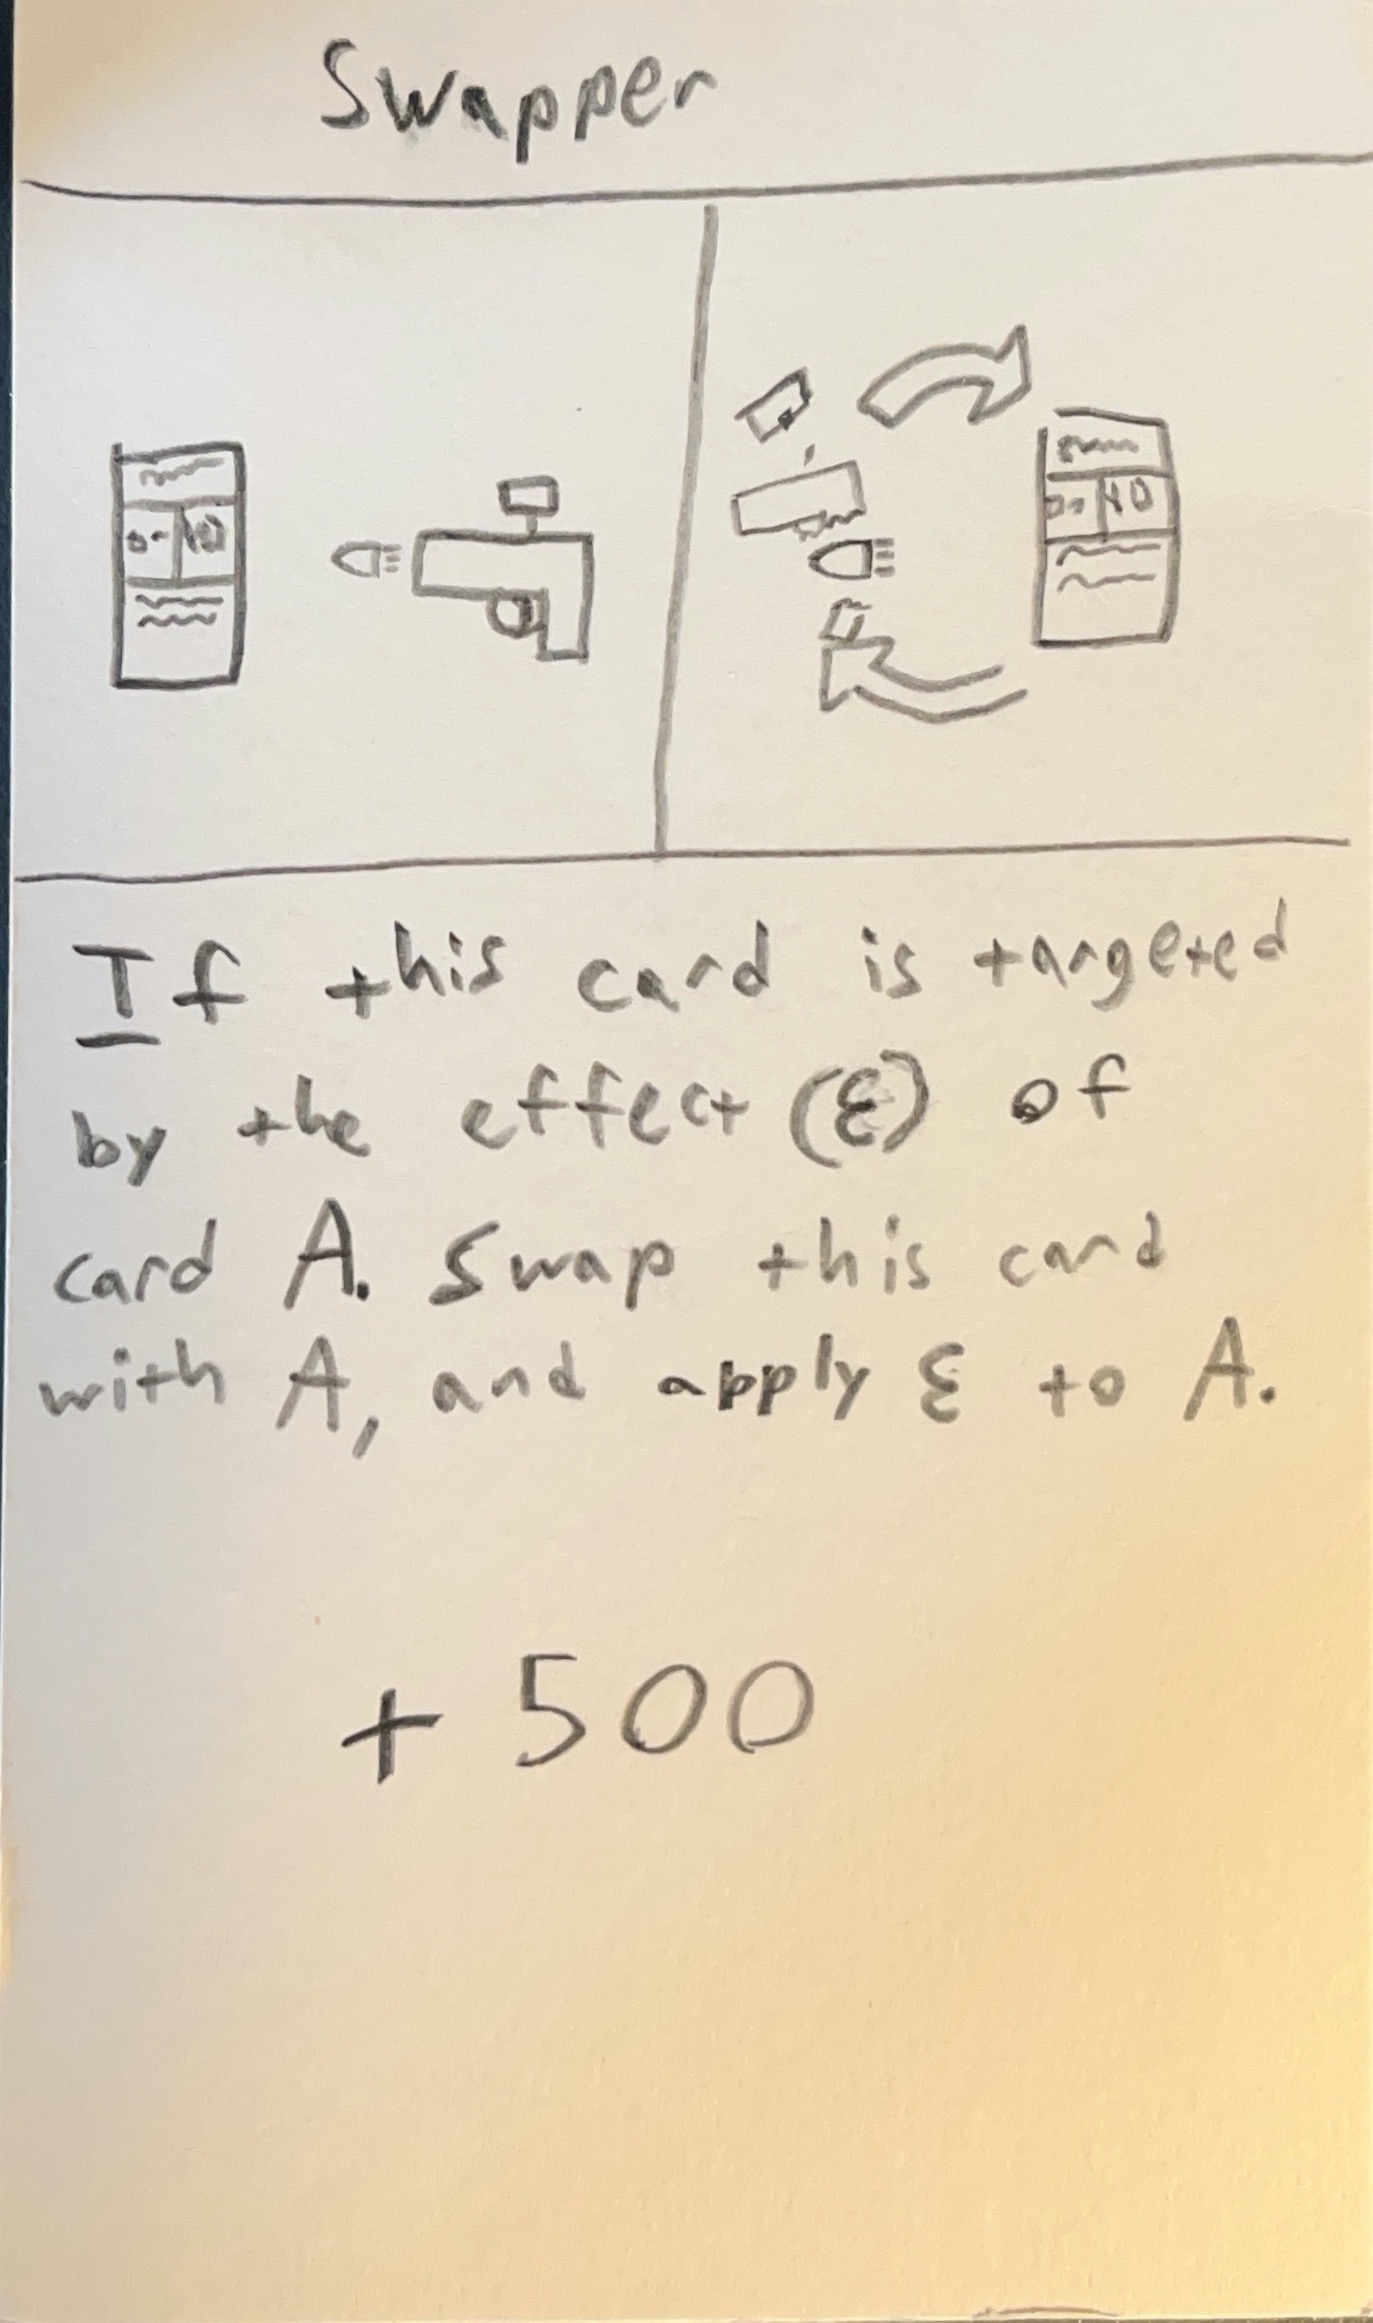 Swapper
If this card is targeted
by the effect (ε) of
card A. Swap this card
with A, and apply ε to A.
+ 500